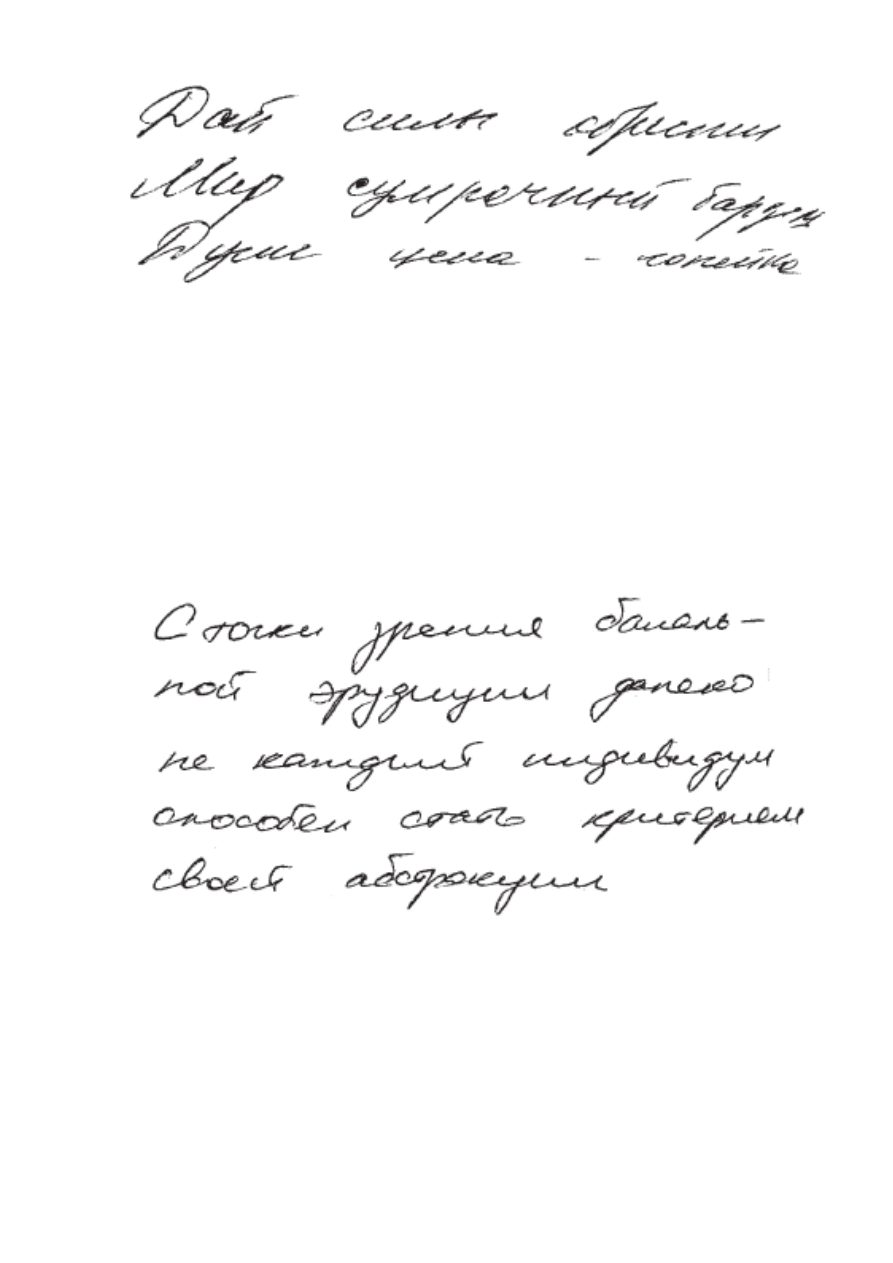 Дай силы
Мир сумрачный бардец
Душе цена - копейка
С точки зрения баналь-
ной эрудиции далеко
не каждый индивидум
способен стать критерием
своей абстракции